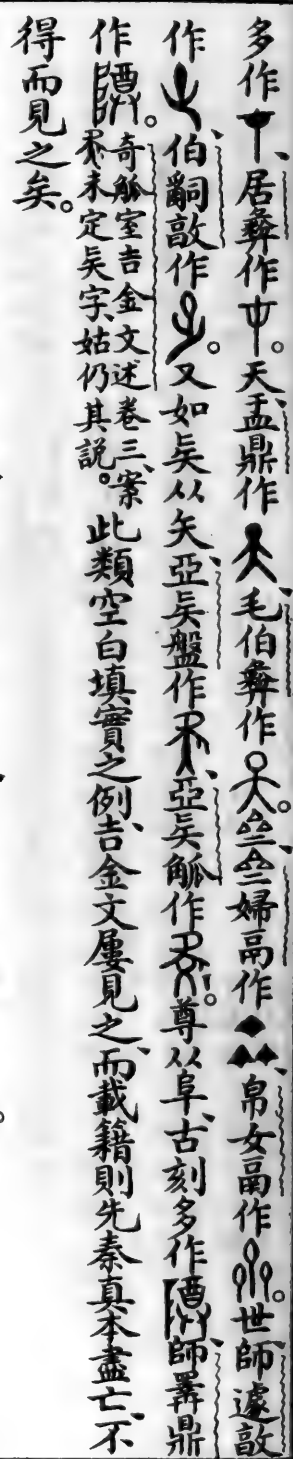 多作、居彝作。天、盂鼎作、毛伯彝作。厽、厽婦鬲作、帛女鬲作。世、師遽敦
作、伯嗣敦作。又如㠱从矢、亞㠱盤作、亞㠱觚作。尊从阜、古刻多作、師㝨鼎
作。奇觚室吉金文述卷三、案未定㠱字、姑仍其説。此類空白填實之例、吉金文屢見之、而載籍則先秦真本盡亡、不
得而見之矣。